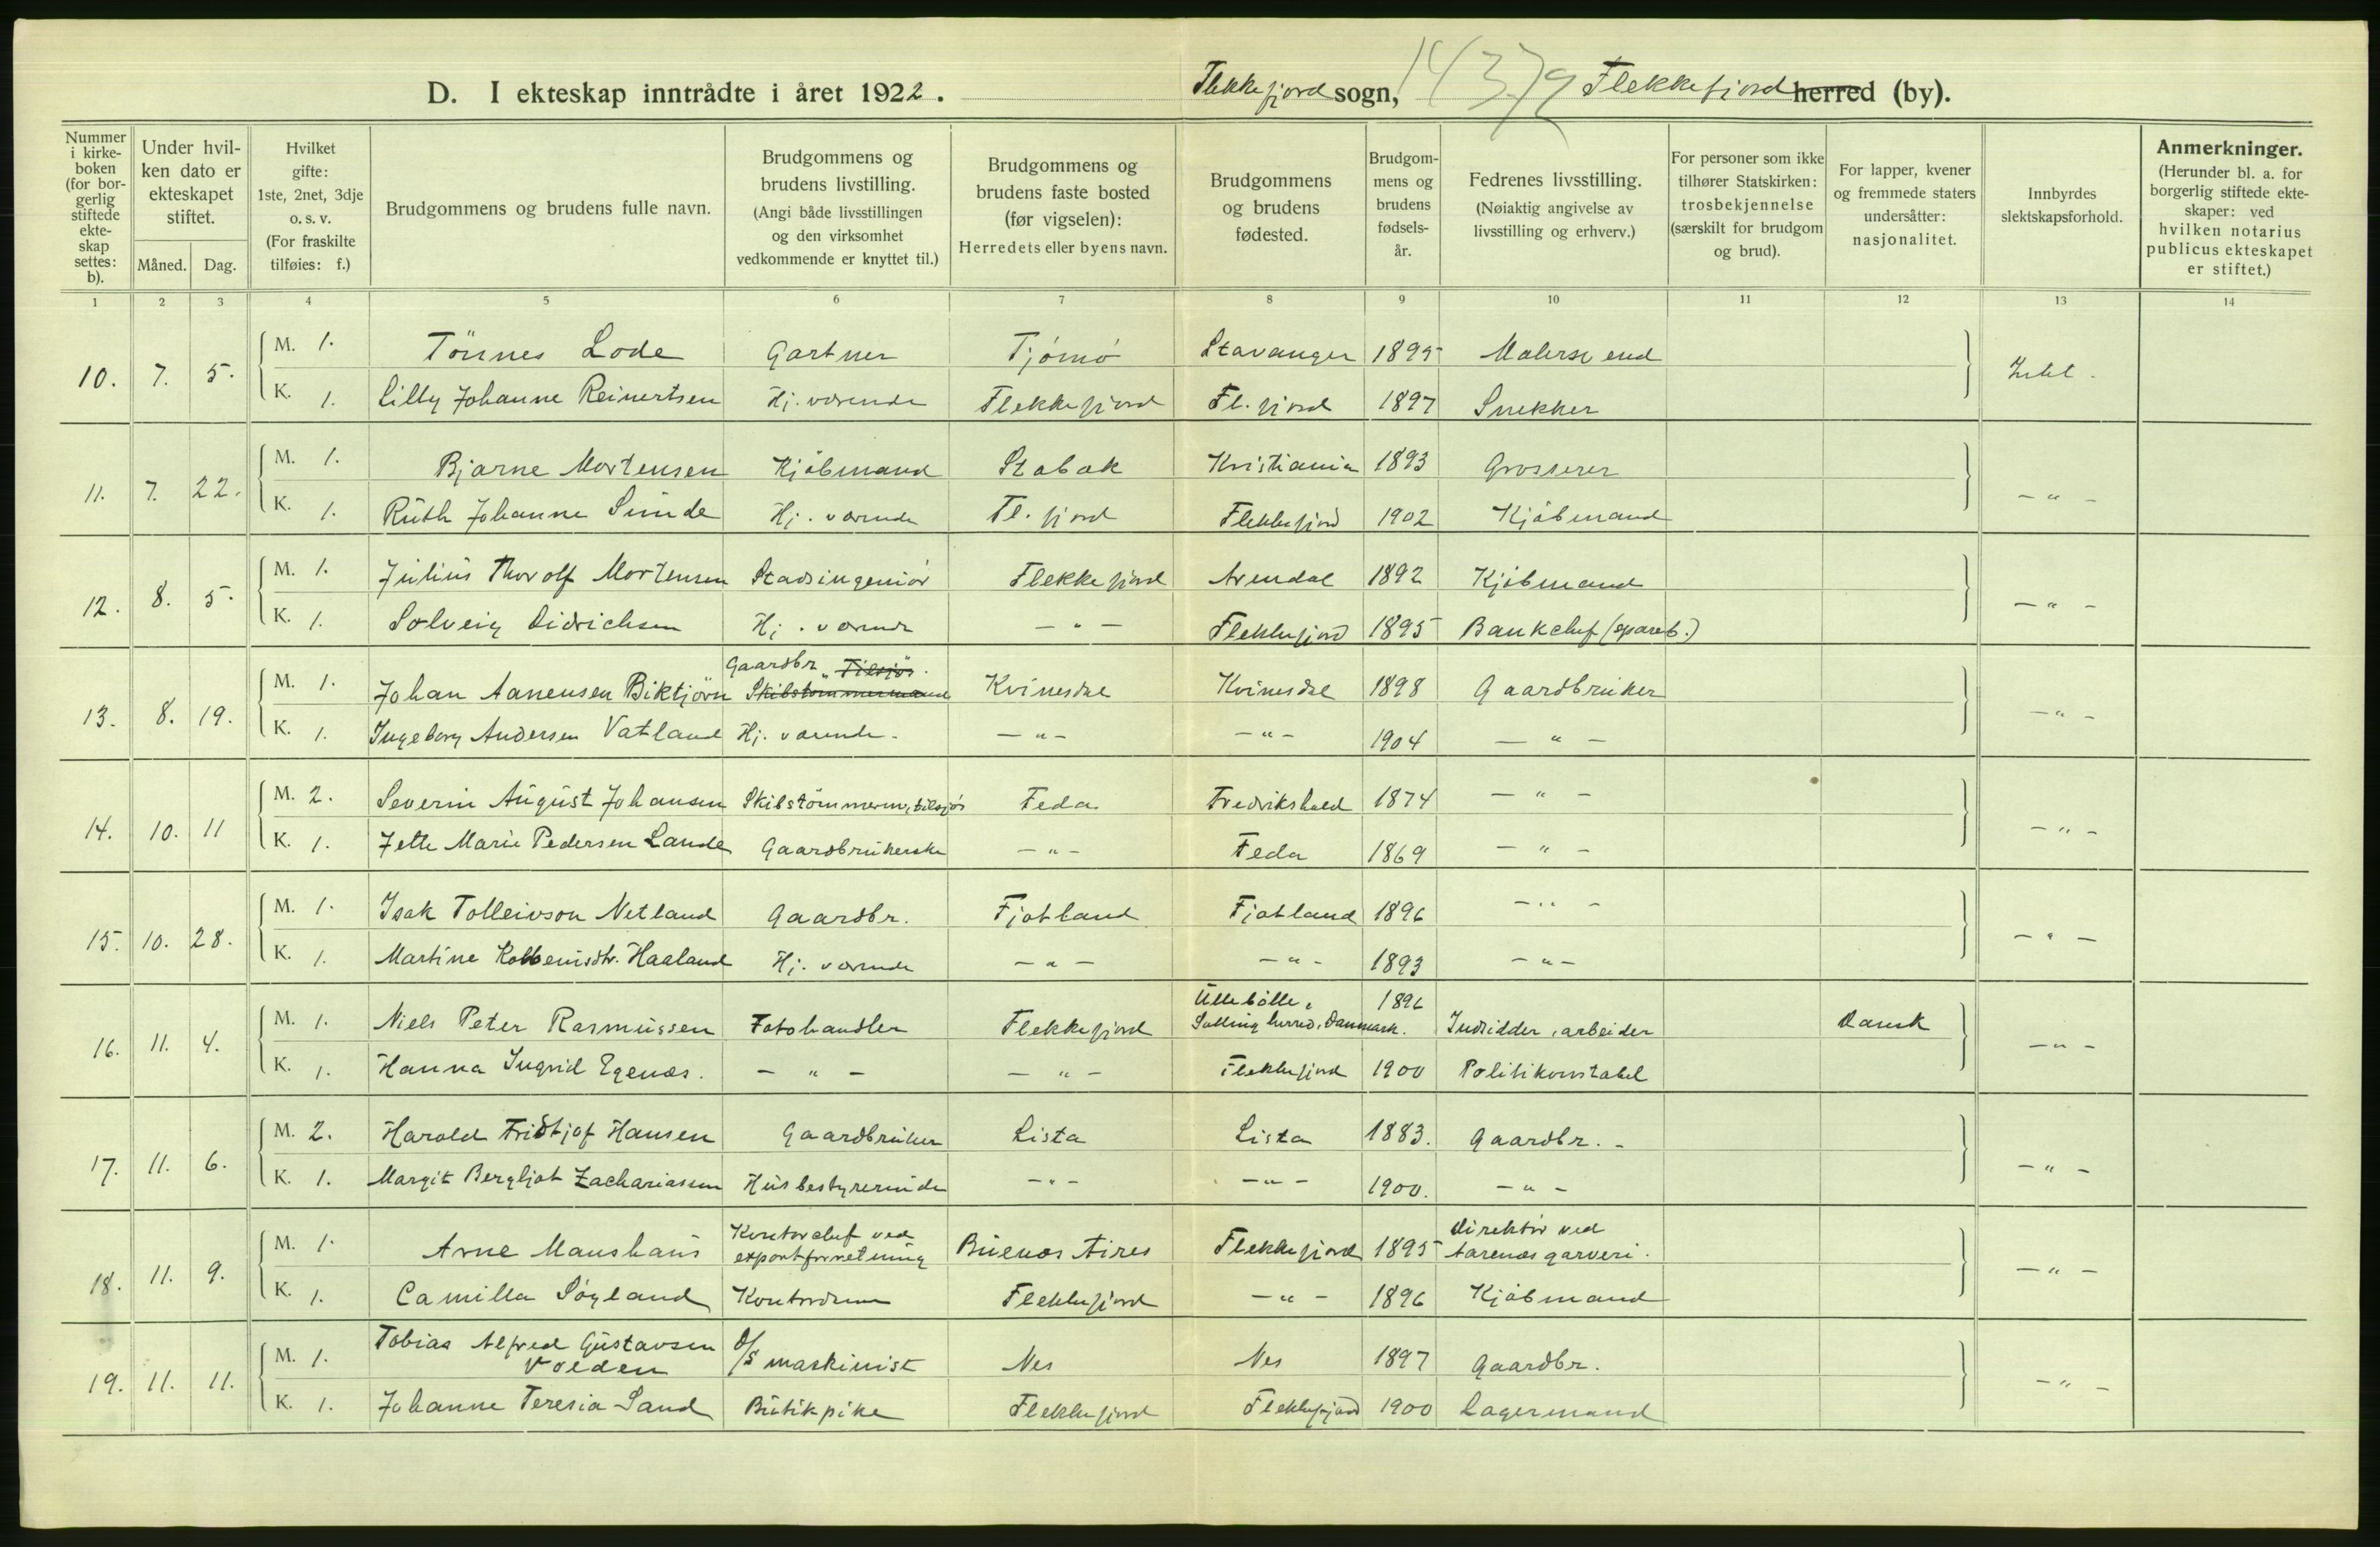 D. I ekteskap inntrådte i året 1922. Flekkefjord sogn, Flekkefjord herred (by).
Nummer i kirkeboken (for borgerlig stiftede ekteskap settes: b).
Under hvilken dato er ekteskapet stiftet.
Måned. Dag.
Hvilket gifte: 1ste, 2net, 3dje o. s. v. (For fraskilte tilføies: f.)
Brudgommens og brudens fulle navn.
Brudgommens og brudens livstilling. (Angi både livsstillingen og den virksomhet vedkommende er knyttet til.)
Brudgommens og brudens faste bosted (før vigselen): Herredets eller byens navn.
Brudgommens og brudens fødested.
Brudgommens og brudens fødselsår.
Fedrenes livsstilling. (Nøiaktig angivelse av livsstilling og erhverv.)
For personer som ikke tilhører Statskirken: trosbekjennelse (særskilt for brudgom og brud).
For lapper, kvener og fremmede staters undersåtter: nasjonalitet.
Innbyrdes slektskapsforhold.
Anmerkninger. (Herunder bl. a. for borgerlig stiftede ekteskaper: ved hvilken notarius publicus ekteskapet er stiftet.)
1 2 3 4 5 6 7 8 9 10 11 12 13 14
10. 7. 5. M. 1. Tönnes Lode Gartner Tjømø Stavanger 1895 Malersvend
K. 1. Lilly Johanne Reinertsen Hj. værende Flekkefjord Fl. fjord 1897 Snekker
11. 7. 22. M. 1. Bjarne Mortensen Kjöbmand Stabak Kristiania 1893 Grosserer — " —
K. 1. Ruth Johanne Sunde Hj. værende Fl. fjord Flekkefjord 1902 Kjöbmand
12. 8. 5. M. 1. Julius Thorolf Mortensen Stadsingeniør Flekkefjord Arendal 1892 Kjöbmand — " —
K. 1. Solveig Didrichsen Hj. værende — " — Flekkefjord 1895 Bankchef (spareb.)
13. 8. 19. M. 1. Johan Aanensen Biktjörn Gaardbr. Tilsjös. Skibstømmermand Kvinesdal Kvinesdal 1898 Gaardbruker — " —
K. 1. Ingeborg Andersen Vatland Hj. værende. — " — — " — 1904 — " —
14. 10. 11 M. 2. Severin August Johansen Skibstömmerm, tilsjös Feda Fredrikshald 1874 — " — — " —
K. 1. Jette Marie Pedersen Lande Gaardbrukerske — " — Feda 1869 — " —
15. 10. 28. M. 1. Isak Tolleivson Netland Gaardbr. Fjotland Fjotland 1896 — " — — " —
K. 1. Martine Haaland Hj. værende — " — — " — 1893 — " —
16. 11. 4. M. 1. Niels Peter Rasmussen Fotohandler Flekkefjord Ullebölle, Salling herred, Danmark. 1896 Indsidder, arbeider Dansk — " —
K. 1. Hanna Ingrid Egenæs. — " — — " — Flekkefjord 1900 Politikonstabel
17. 11. 6. M. 2. Harald Fridtjof Hansen Gaardbruker Lista Lista 1883. Gaardbr. — — " —
K. 1. Margit Bergljot Zachariassen Husbestyrerinde — " — — " — 1900. — " —
18. 11. 9. M. 1. Arne Maushaus Kontorchef ved exportforretning Buenos Aires Flekkefjord 1895 Direktör ved Aarenæs garveri. — " —
K. 1. Camilla Søyland Kontordame Flekkefjord — " — 1896 Kjöbmand
19. 11. 11. M. 1. Tobias Alfred Gustavsen Volden D/S maskinist Nes Nes 1897 Gaardbr. — " —
K. 1. Johanne Teresia Sand Butikpike Flekkefjord Flekkefjord 1900 Lagermand